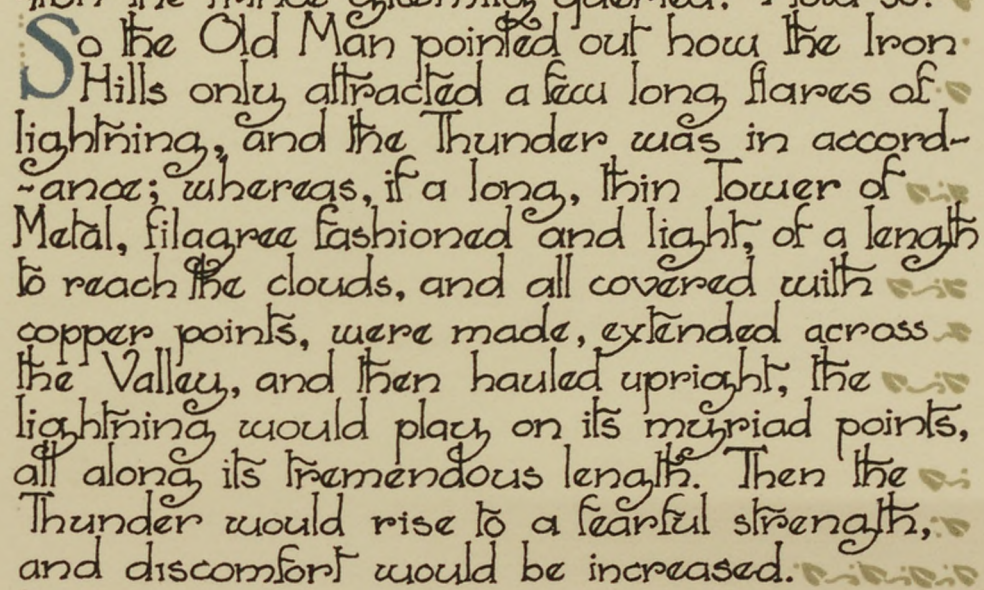 queried. "How so?"
So the Old Man pointed out how the Iron
Hills only attracted a few long flares of
lightning, and the Thunder was in accord-
-ance; whereas, if a long, thin Tower of
Metal, filagree fashioned and light, of a length
to reach the clouds, and all covered with
copper points, were made, extended across
the Valley, and then hauled upright, the
lightning would play on its myriad points,
all along its tremendous length. Then the
Thunder would rise to a fearful strength,
and discomfort would be increased.